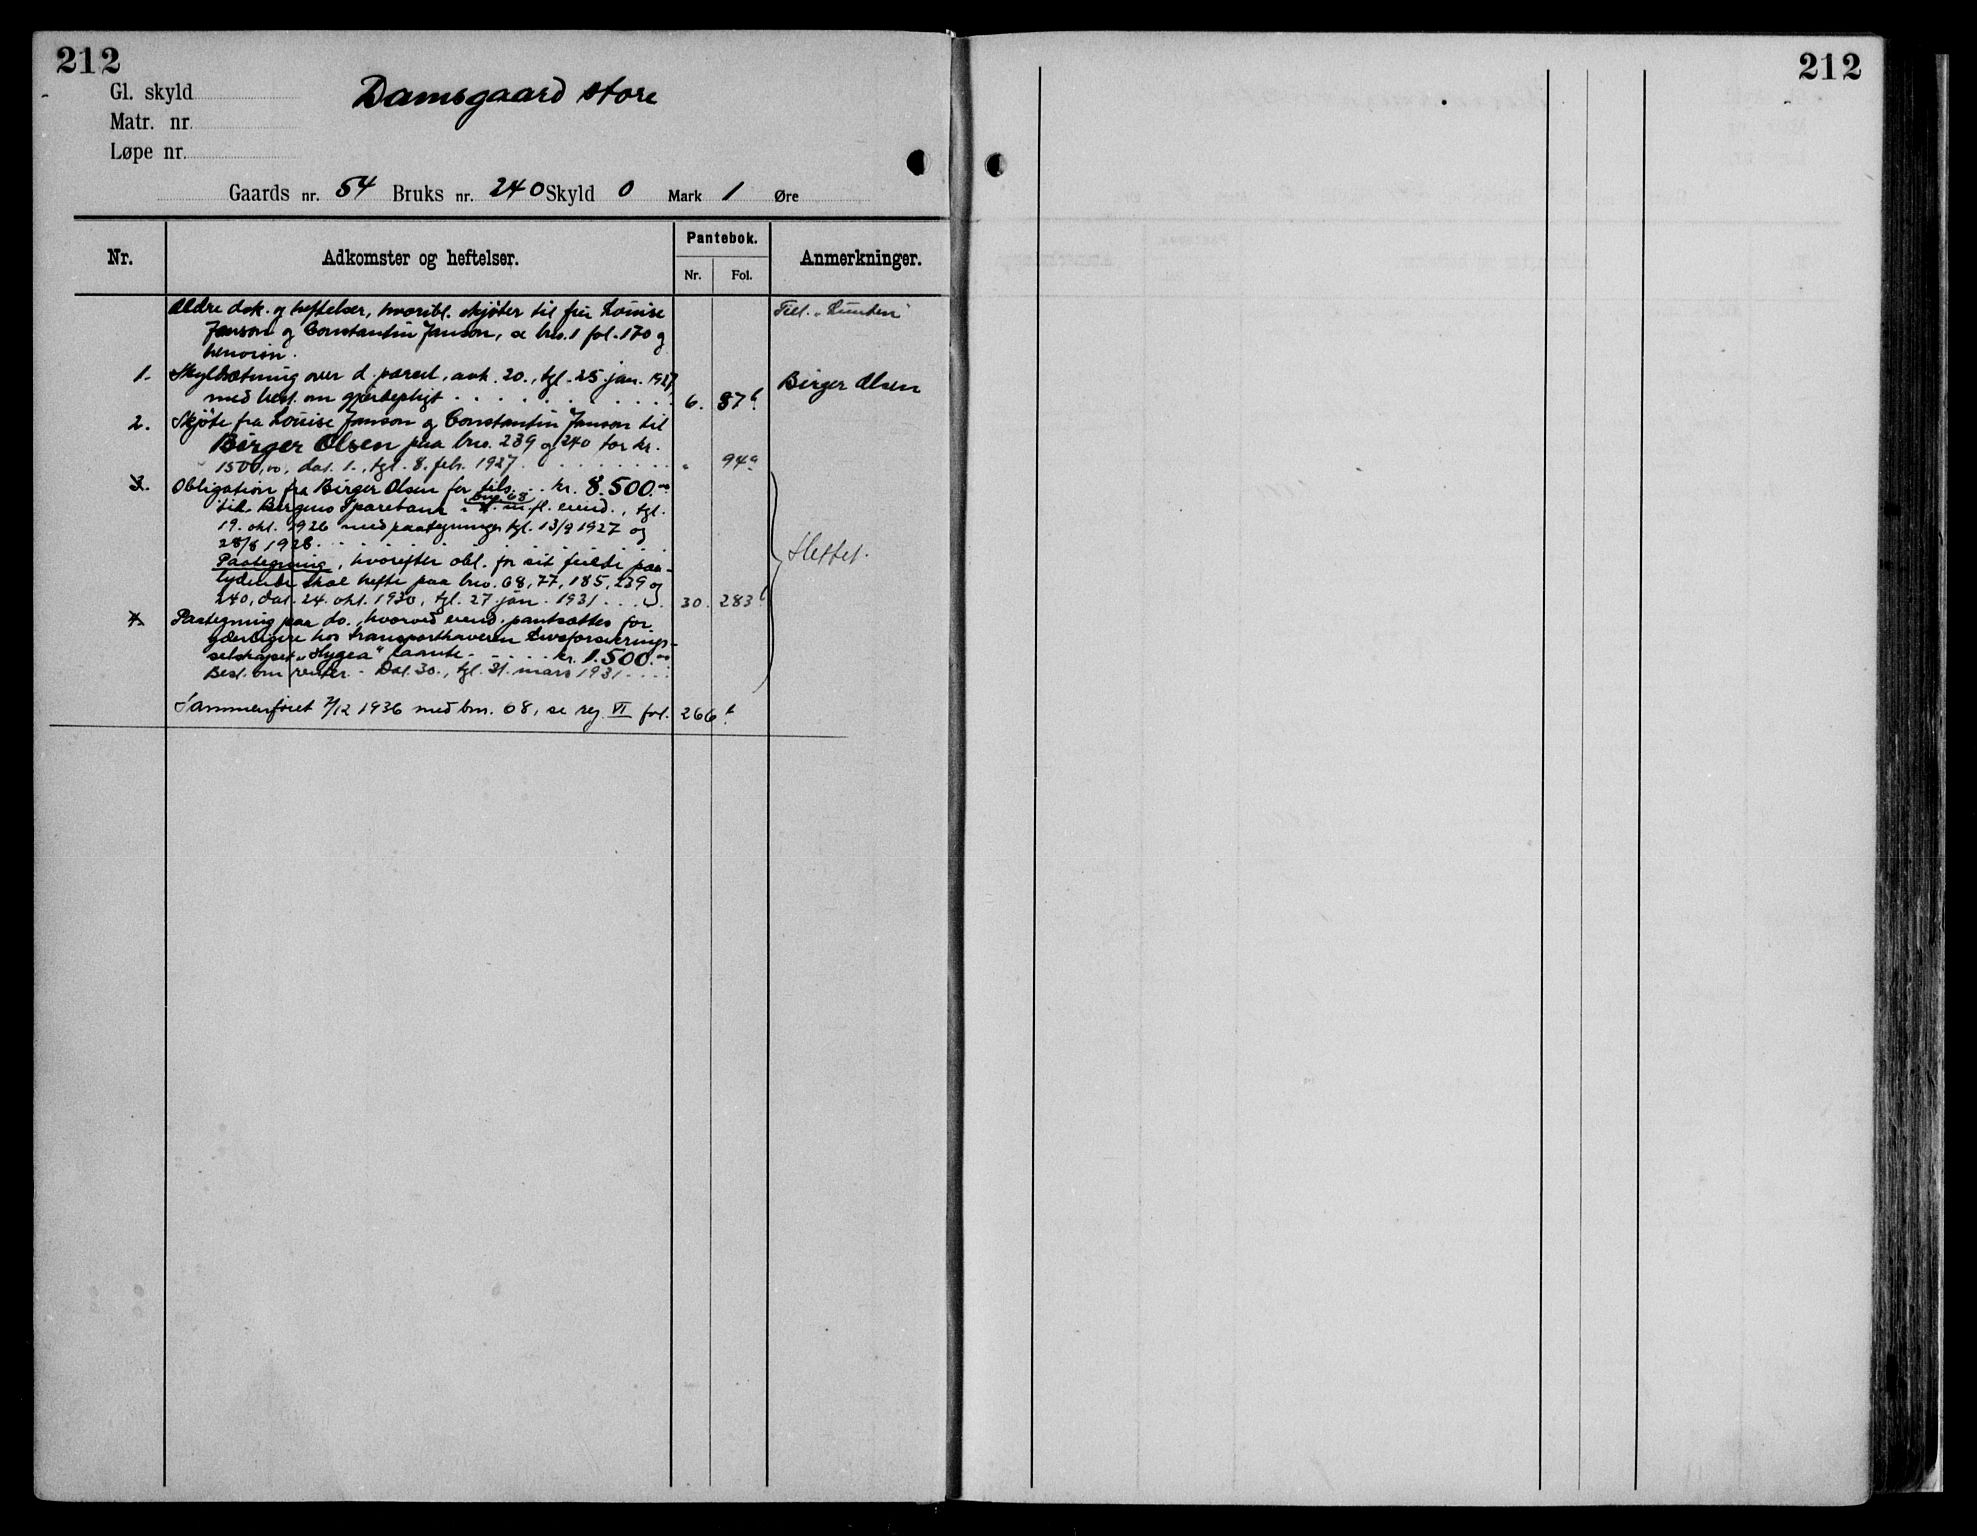 212
212
Gl. skyld
Damsgaard store
Matr. nr.
Løpe nr.
Gaards nr. 54 Bruks nr. 240 Skyld 0 Mark 1 Øre
Nr.
Adkomster og heftelser.
Pantebok.
Nr. Fol.
Anmerkninger.
Ældre dok. og heftelser, hvoribl. skjøter til fru Louise
Janson og Constantin Janson, se brs. 1 fol. 170 og
henvisn.
Till. "Lunden"
1. Skyldsætning over d. parcel, avh. 20., tgl. 25. jan. 1927,
med best. om gjerdepligt 6. 87b.
Birger Olsen
2. Skjøte fra Louise Janson og Constantin Janson til
Birger Olsen paa brs. 239 og 240 for kr.
1500,00, dat. 1., tgl. 8. feb. 1927. " 94a
3. Obligation fra Birger Olsen for tils. kr. 8.500.00
til Bergens Sparebank i bnr. 68 m. fl. eiend., tgl.
19. okt. 1926 med paategninger tgl. 13/9 1927 og
28/8 1928.
Paategning, hvorefter obl. for sit fulde paa-
lydende skal hefte paa brs. 68, 77, 185, 239 og
240, dat. 24. okt. 1930, tgl. 27. jan. 1931 30. 283b
Slettet.
4. Paategning paa do., hvorved eiend. pantsættes for
yderligere hos transporthaveren Livsforsikrings-
selskapet "Hygea" laante kr. 1.500.00
Best. om renter. Dat. 30., tgl. 31. mars 1931
Sammenføiet 7/12 1936 med bnr. 68, se reg. VI fol. 266b.